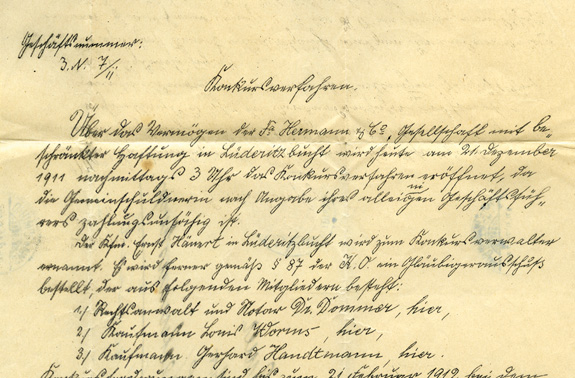 Geschäftsnummer:
3. N. 7/11
Konkursverfahren.
Über das Vermögen der Fa Hermann & Co, Gesellschaft mit be-
schränkter Haftung in Lüderitzbucht wird heute am 21. Dezember
1911 nachmittags 3 Uhr das Konkursverfahren eröffnet, da
die Gemeinschuldnerin nach Angabe ihres alleinigen Geschäftsfüh-
rers zahlungsunfähig ist.
Der Kfm. Ernst Hänert in Lüderitzbucht wird zum Konkursverwalter
ernannt. Es wird ferner gemäß § 87 der K.O. ein Gläubigerausschuß
bestellt, der aus folgenden Mitgliedern besteht:
1./ Rechtsanwalt und Notar Dr. Dommer, hier,
2./ Kaufmann Louis Worms, hier,
3./ Kaufmann Gerhard Handtmann, hier.
Konkursforderungen sind bis zum 21. Februar 1912 bei dem